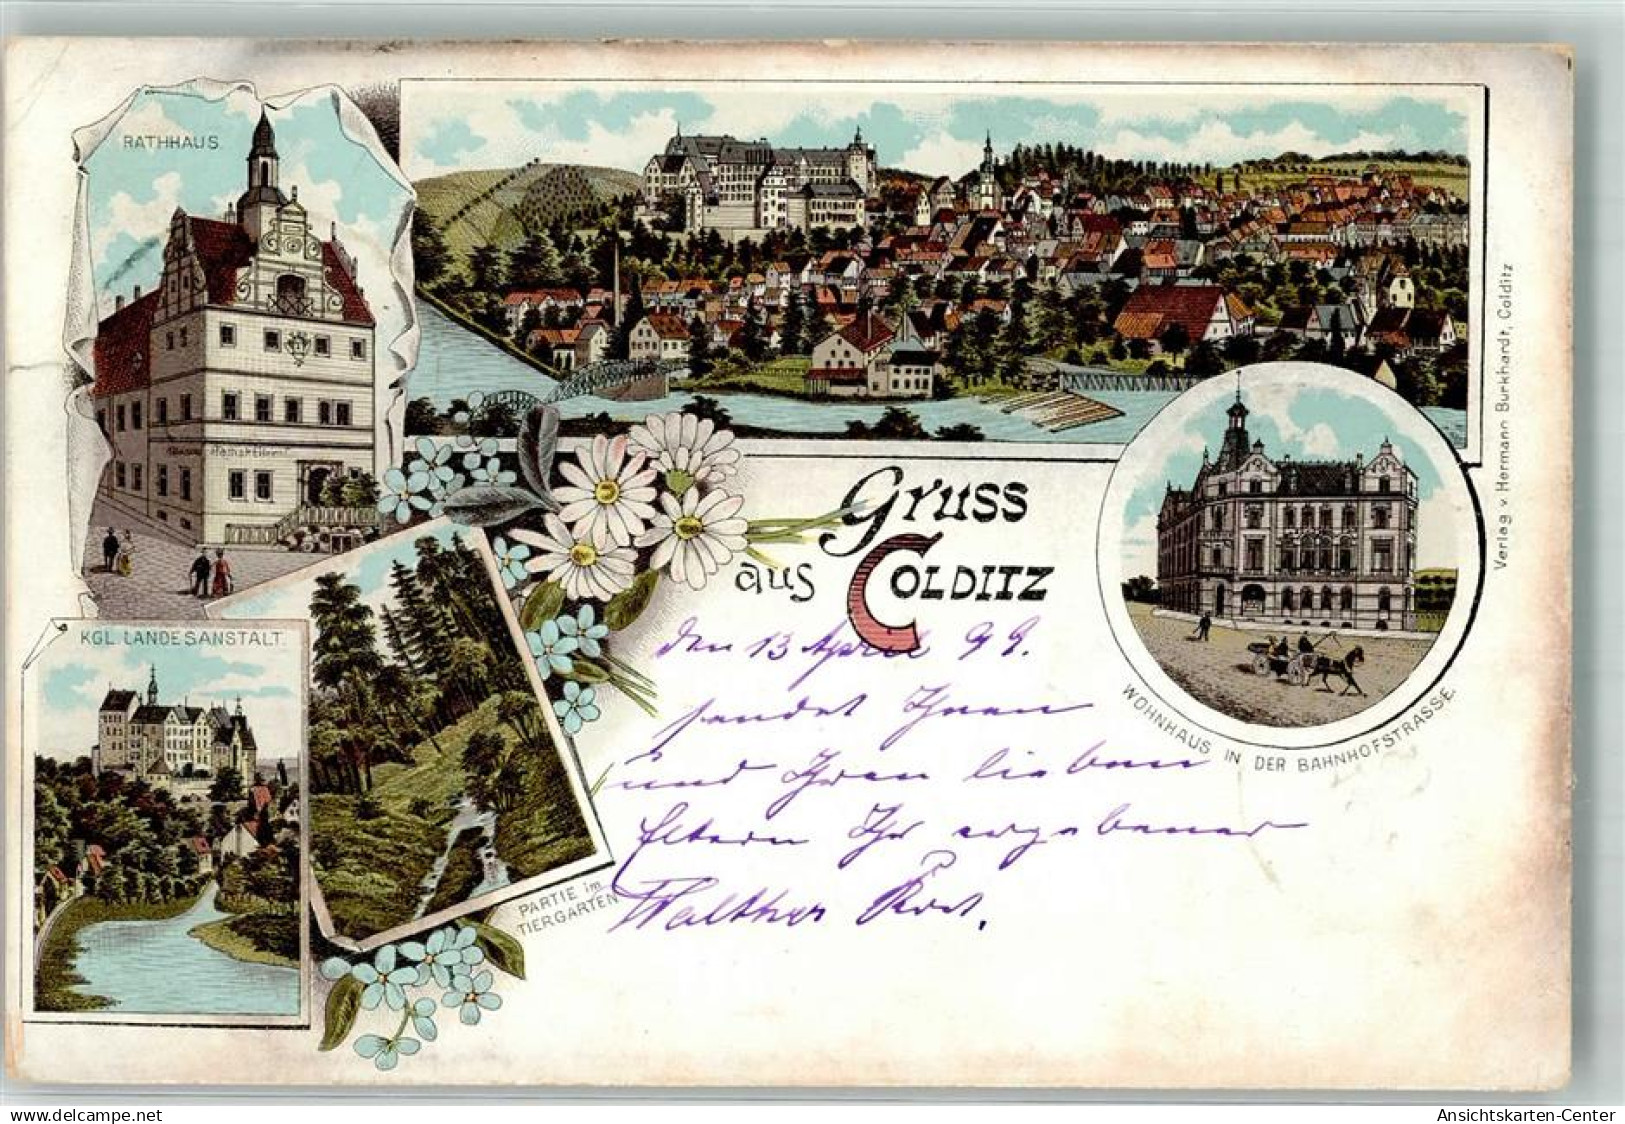 RATHHAUS.
Gruss
aus COLDITZ
KGL. LANDESANSTALT.
PARTIE im
TIERGARTEN
WOHNHAUS IN DER BAHNHOFSTRASSE.
Verlag v. Hermann Burkhardt, Colditz
den 13 April 99.
sendet Ihnen
und Ihren lieben
Eltern Ihr ergebener
Walther
© www.delcampe.net
Ansichtskarten-Center